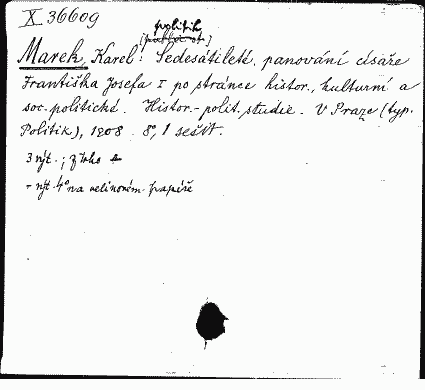 X 36609
politik
Marek, Karel: Šedesátileté panování císaře
Františka Josefa I po stránce histor., kulturní a
soc.-politické. Histor.-polit. studie. V Praze (typ.
Politik), 1908. 8°, 1 sešit.
3 výt.; z toho
- výt. 4° na velinovém papíře